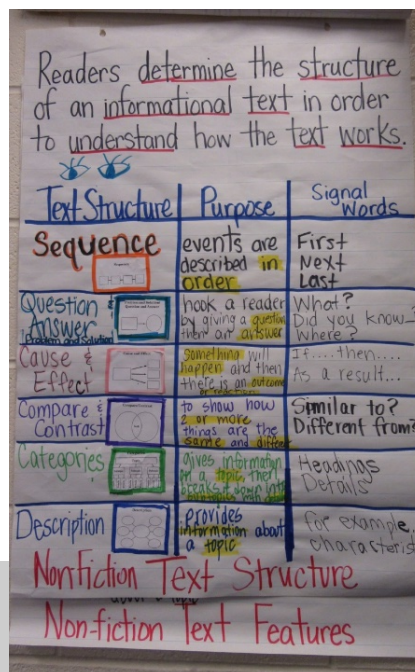 Readers determine the structure
of an informational text in order
to understand how the text works.
Text Structure
Purpose
Signal
Words
Sequence
events are
described in
order
First
Next
Last
Question &
Answer
Problem and Solution
hook a reader
by giving a question
then an answer
What?
Did you know
Where?
Cause &
Effect
Something will
happen and then
there is an outcome
or reaction
If....then....
As a result...
Compare &
Contrast
to show how
2 or more
things are the
same and different
Similar to?
Different from?
Categories
gives information
on a topic, then
breaks it down into
Headings
Details
Description
provides
information about
a topic
for example,
characterist
Nonfiction Text Structure
Non-fiction Text Features